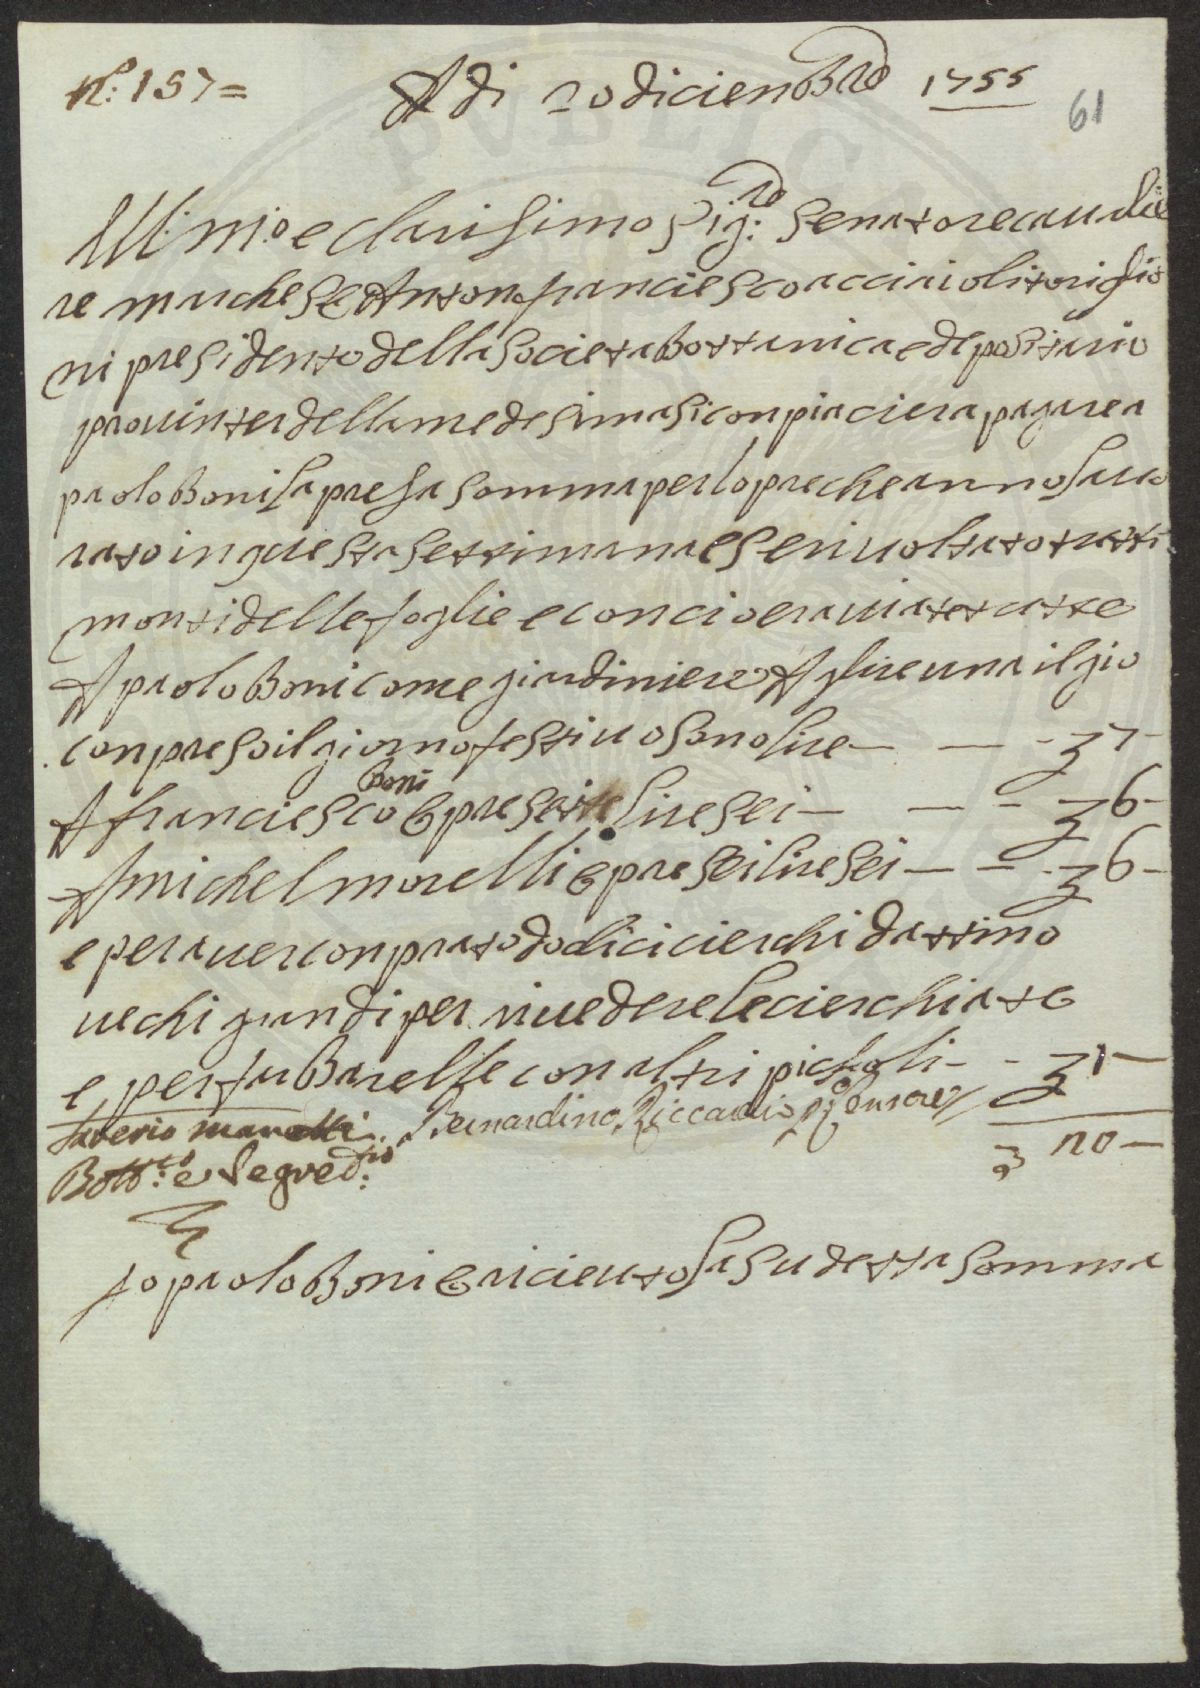 N.o: 157 =
A di 20 diciembro 1755
61
Ill:mo e clarisimo Sig:ro Senatore caualie
re marchese Antonfranciesco acciaioli toriglio
ni presidento della societa bottanica e depositario
prouinter della medesima si conpiaciera pagare a
paolo Boni la presa somma per lopre che anno lauo
rato in questa settimana e seriuoltato tutti
monti delle foglie e concio erauiatetutte
A paolo Boni come giardiniere A lire una il gio
conpreso il giorno festiuo sono lire — — 7 —
A franciesco Boni e pre sei lire sei — — 6 —
A michel morelli e pre sei lire sei — — 6 —
e per auer conprato dodici cierchi da ttino
uechi grandi per riuedere le cierchiate
e per fu Barelle con altri pichcoli — — 1 —
Saverio Manetti Bernardino Riccardi Censore
Bott:co e Segred:rio
20 —
Io paolo Boni e riceuto la sudetta somma
PVBLIC